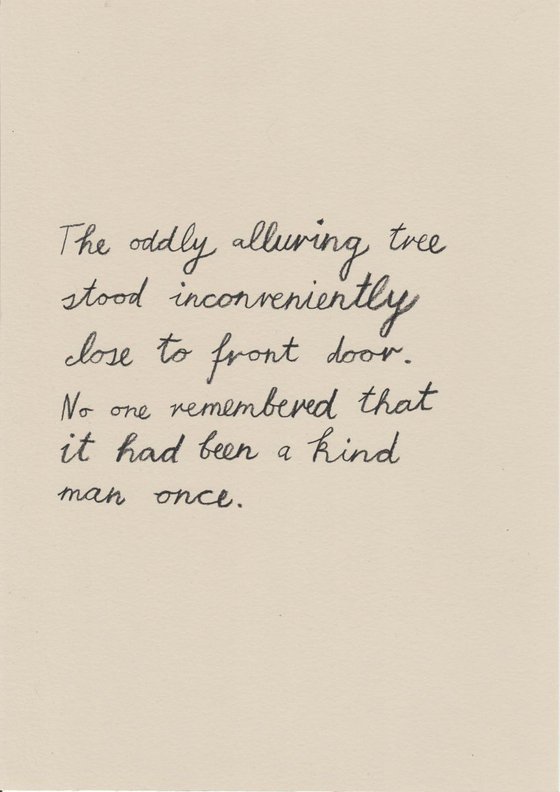 The oddly alluring tree
stood inconveniently
close to front door.
No one remembered that
it had been a kind
man once.